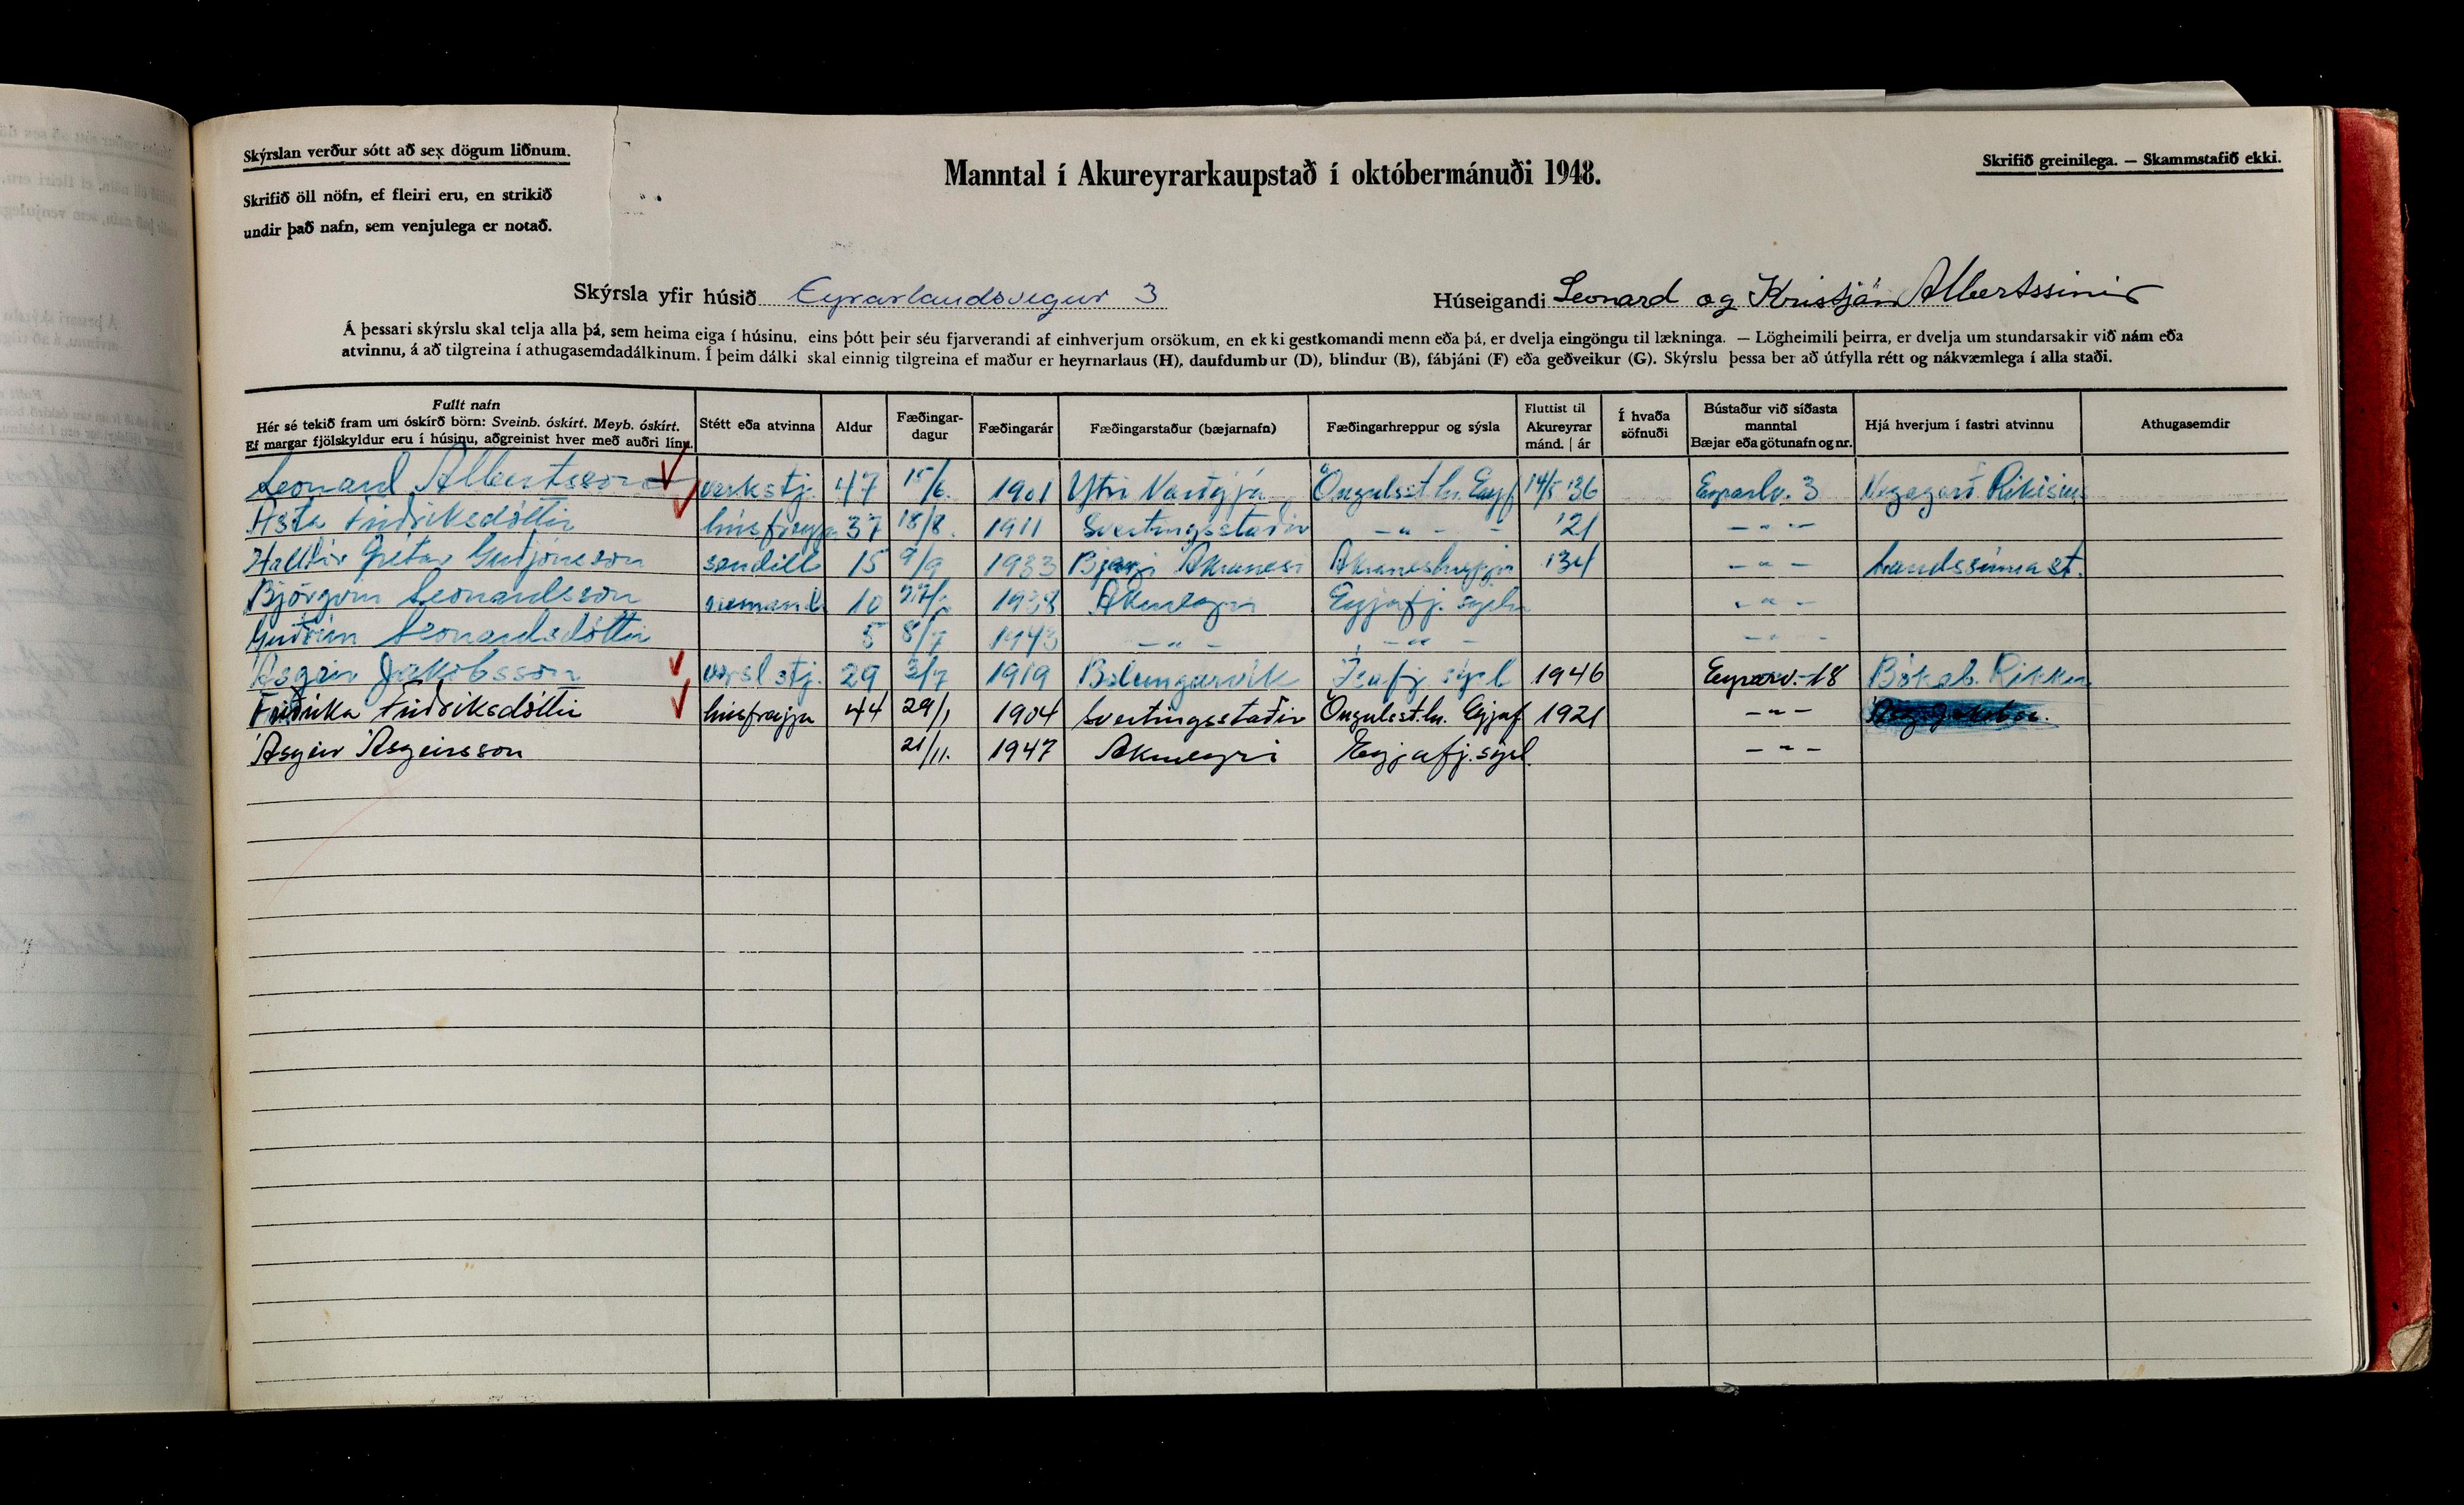 Skýrslan verður sótt að sex dögum liðnum.
Skrifið öll nöfn, ef fleiri eru, en strikið
undir það nafn, sem venjulega er notað.
Manntal í Akureyrarkaupstað í októbermánuði 1948.
Skrifið greinilega. — Skammstafið ekki.
Skýrsla yfir húsið Eyrarlandsvegur 3
Húseigandi Leonard og Kristján Albertssinir
Á þessari skýrslu skal telja alla þá, sem heima eiga í húsinu, eins þótt þeir séu fjarverandi af einhverjum orsökum, en ekki gestkomandi menn eða þá, er dvelja eingöngu til lækninga. — Lögheimili þeirra, er dvelja um stundarsakir við nám eða
atvinnu, á að tilgreina í athugasemdadálkinum. Í þeim dálki skal einnig tilgreina ef maður er heyrnarlaus (H), daufdumbur (D), blindur (B), fábjáni (F) eða geðveikur (G). Skýrslu þessa ber að útfylla rétt og nákvæmlega í alla staði.
Fullt nafn
Hér sé tekið fram um óskírð börn: Sveinb. óskírt. Meyb. óskírt.
Ef margar fjölskyldur eru í húsinu, aðgreinist hver með auðri línu.
Stétt eða atvinna
Aldur
Fæðingar-
dagur
Fæðingarár
Fæðingarstaður (bæjarnafn)
Fæðingarhreppur og sýsla
Fluttist til
Akureyrar
mánd. | ár
Í hvaða
söfnuði
Bústaður við síðasta
manntal
Bæjar eða götunafn og nr.
Hjá hverjum í fastri atvinnu
Athugasemdir
Leonard Albertsson verkstj. 47 15/6. 1901 Ytri Varðgjá Öngulsst.hr. Eyjf 14/5 '36 Eyrarlv. 3 Vegagerð Ríkisins
Ásta Friðriksdóttir húsfreyja 37 18/8. 1911 Sveitingsstaðir - " - '21 - " -
Halldór Grétar Guðjónsson sendill 15 9/9 1933 Bjargi Akranesi Akraneshreppi '34 - " - Landssímast.
Björgvin Leonardsson 10 1938 Akureyri Eyjafj. sýslu - " -
Guðrún Leonardsdóttir 5 8/7 1943 - " - - " - - " -
Ásgeir Jakobsson verslstj. 29 3/7 1919 Bolungarvík Ísafj. sýsl 1946 Eyrarv.-18 Bókab. Rikku
Friðrika Friðriksdóttir húsfreyja 44 29/1 1904 Sveitingsstaðir Öngulsst.hr. Eyjaf 1921 - " -
Ásgeir Ásgeirsson 21/11. 1947 Akureyri Eyjafj. sýsl. - " -